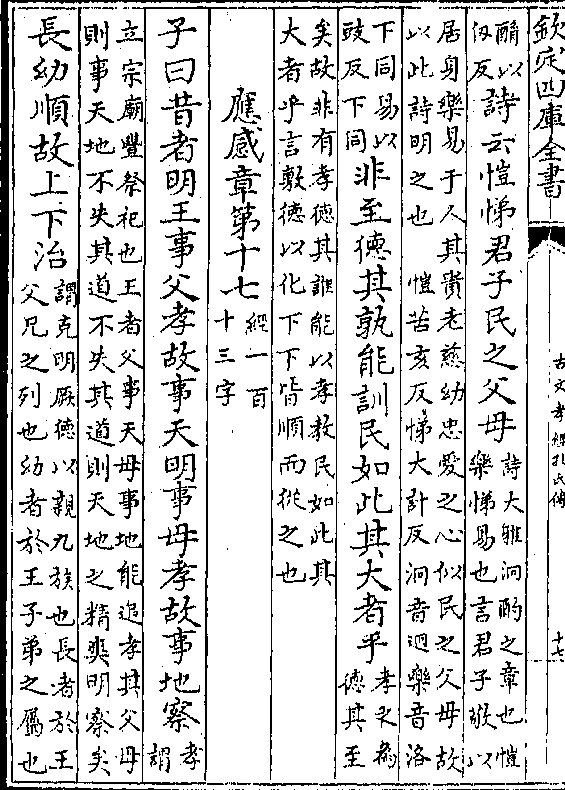 欽定四庫全書
古文孝經孔氏傳
十七
酳以
仭反
詩云愷悌君子民之父母
詩大雅泂酌之章也愷
樂悌易也言君子敬以
居身樂易于人其貴老慈幼忠愛之心似民之父母故
以此詩明之也　愷苦亥反悌大計反泂音迥樂音洛
下同易以
豉反下同
非至德其孰能訓民如此其大者乎
孝之為
德其至
矣故非有孝德其誰能以孝教民如此其
大者乎言敷德以化下下皆順而從之也
應感章第十七
經一百
十三字
子曰昔者明王事父孝故事天明事母孝故事地察
孝
謂
立宗廟豐祭祀也王者父事天母事地能追孝其父母
則事天地不失其道不失其道則天地之精爽明察矣
長幼順故上下治
謂克明厥德以親九族也長者於王
父兄之列也幼者於王子弟之屬也